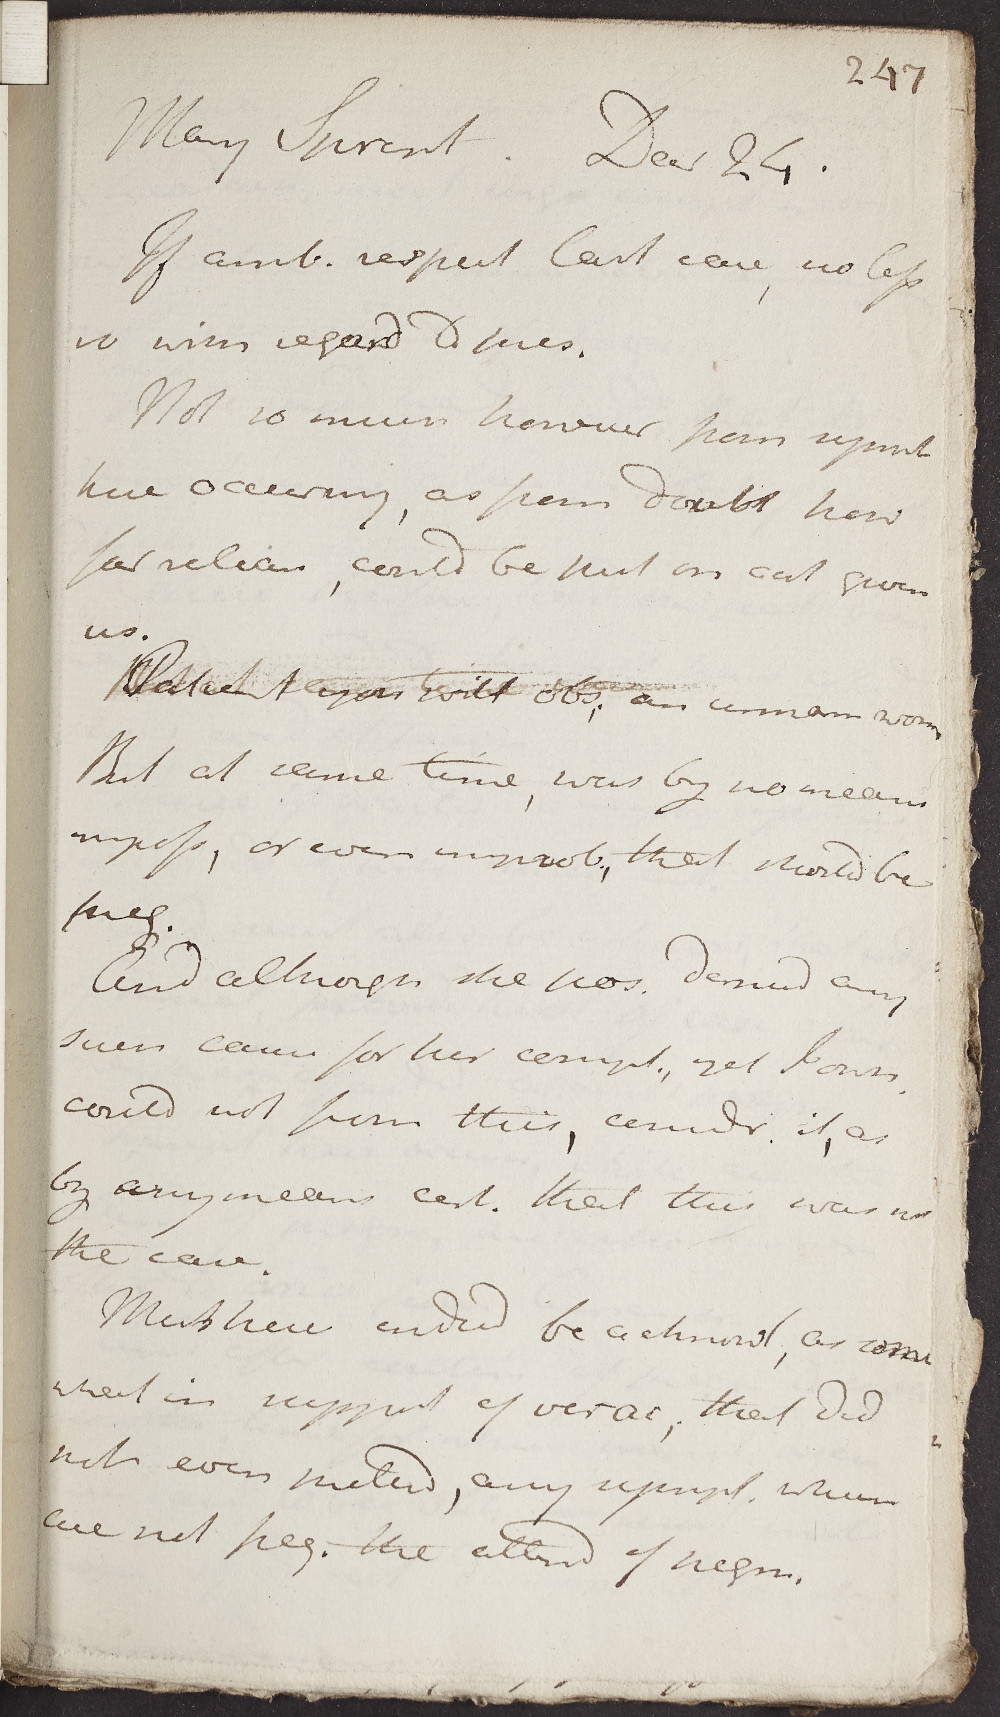 247
Mary Sprent. Dec 24.
If amb. respect last case, no less
so with regard to pres.
Not so much however from sympt
here occurring, as from doubt how
far relian, could be put on acct given
us.
Patient you will obs, an unmarr wom
But at same time, was by no means
imposs, or even improb, that should be
preg.
And although she pos. denied any
such cause for her compt., yet I own,
could not from this, consider. it, as
by any means cert. that this was not
the case.
Must here indeed be acknowl, as some
what in support of verac, that did
not even pretend, any sympt. which
are not freq. the attend of pregn.